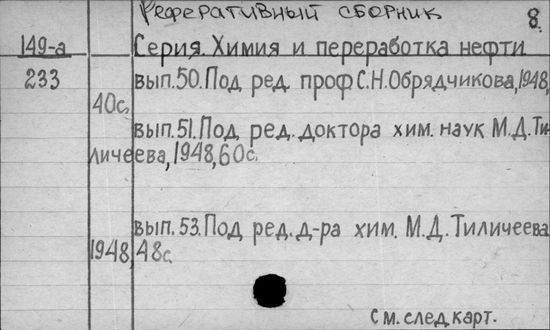 Реферативный сборник 8.
149-а Серия. Химия и переработка нефти
233 вып.50. Под ред. проф С.Н.Обрядчикова, 1948,
40с.
вып.51. Под ред. доктора хим. наук М.Д.Ти-
личеева, 1948, 60с.
вып.53. Под ред. д-ра хим. М.Д.Тиличеева
1948, 48с.
См. след. карт.